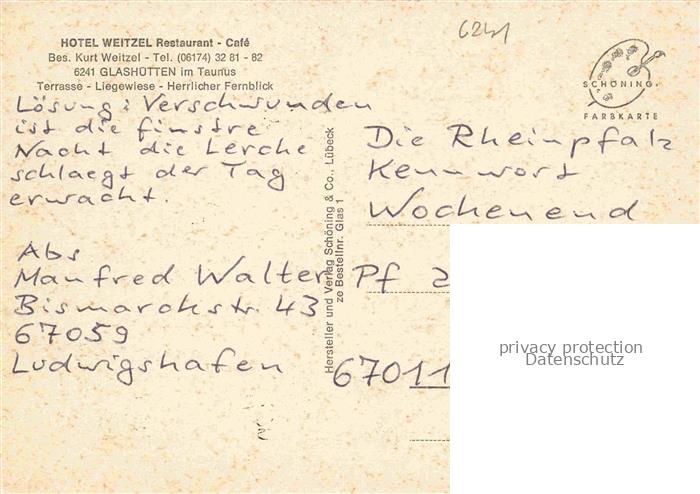 6241
HOTEL WEITZEL Restaurant - Café
Bes. Kurt Weitzel - Tel. (06174) 32 81 - 82
6241 GLASHÜTTEN im Taunus
Terrasse - Liegewiese - Herrlicher Fernblick
SCHÖNING
FARBKARTE
Lösung: Verschwunden
ist die finstre
Nacht die Lerche
schlaegt der Tag
erwacht.
Abs
Manfred Walter
Bismarckstr. 43
67059
Ludwigshafen
Hersteller und Verlag Schöning & Co., Lübeck
ze Bestellnr. Glas 1
Die Rheinpfalz
Kennwort
Wochenend
Pf 2
67011
privacy protection
Datenschutz